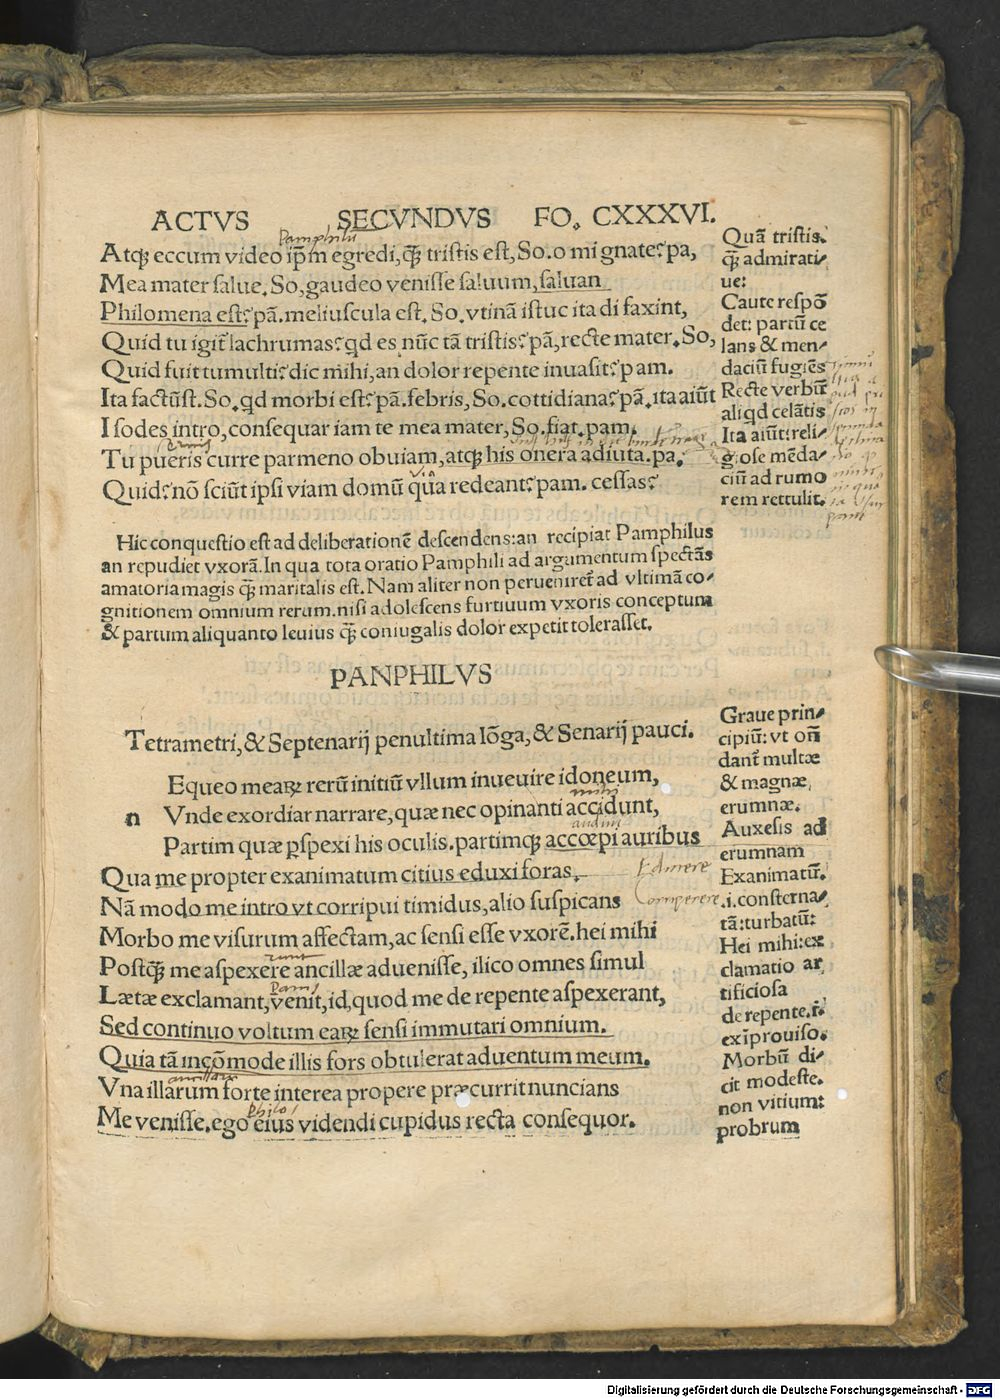 ACTVS SECVNDVS FO. CXXXVI.
Pamphilū
Atqꝫ eccum video ip̄m egredi, q̄ꝫ tristis est, So. o mi gnate? pa,
Mea mater salue. So, gaudeo venisse saluum, saluan
Philomena est? pā. meliuscula est. So. vtinā istuc ita di faxint,
Quid tu igit̄ lachrumas? qd es nūc tā tristis? pā, recte mater. So,
Quid fuit tumulti? dic mihi, an dolor repente inuasit? pam.
Ita factūst. So. qd morbi est? pā. febris, So. cottidiana? pā. ita aiūt
I sodes intro, consequar iam te mea mater, So. fiat. pam.
Tu pueris curre parmeno obuiam, atqꝫ his onera adiuta. pa.
via
Quid? nō sciūt ipsi viam domū qua redeant? pam. cessas?
Quā tristis.
q̄ꝫ admirati/
ue:
Caute respō
det: partū ce
lans & men/
daciū fugiēs
Recte verbū
aliqd celātis
Ita aiūt: reli/
giose mēda/
ciū ad rumo
rem rettulit.
Hic conquestio est ad deliberationē descendens: an recipiat Pamphilus
an repudiet vxorā. In qua tota oratio Pamphili ad argumentum spectās
amatoria magis q̄ꝫ maritalis est. Nam aliter non perueniret̄ ad vltimā co/
gnitionem omnium rerum. nisi adolescens furtiuum vxoris conceptum
& partum aliquanto leuius q̄ꝫ coniugalis dolor expetit tolerasset.
PANPHILVS
Tetrametri, & Septenarij penultima lōga, & Senarij pauci.
Equeo meaꝝ rerū initiū vllum inueuire idoneum,
mihi
n Vnde exordiar narrare, quæ nec opinanti accidunt,
audiui
Partim quæ ꝑspexi his oculis. partimqꝫ accœpi auribus
Qua me propter exanimatum citius eduxi foras. Edurere
Nā modo me intro vt corripui timidus, alio suspicans
Morbo me visurum affectam, ac sensi esse vxorē. hei mihi
Postq̄ꝫ me aspexere ancillæ aduenisse, ilico omnes simul
Lætæ exclamant, venit, id, quod me de repente aspexerant,
Sed continuo voltum eaꝝ sensi immutari omnium.
Quia tā incōmode illis fors obtulerat aduentum meum.
ancillarū
Vna illarum forte interea propere præcurrit nuncians
Philo
Me venisse. ego eius videndi cupidus recta consequor.
Graue prin/
cipiū: vt om̄
dant̄ multæ
& magnæ,
erumnæ.
Auxesis ad
erumnam
Exanimatū.
.i. consterna/
tā: turbatū:
Hei mihi: ex
clamatio ar,
tificiosa
de repente. i.
exīprouiso.
Morbū di/
cit modeste.
non vitium:
probrum
Digitalisierung gefördert durch die Deutsche Forschungsgemeinschaft - DFG